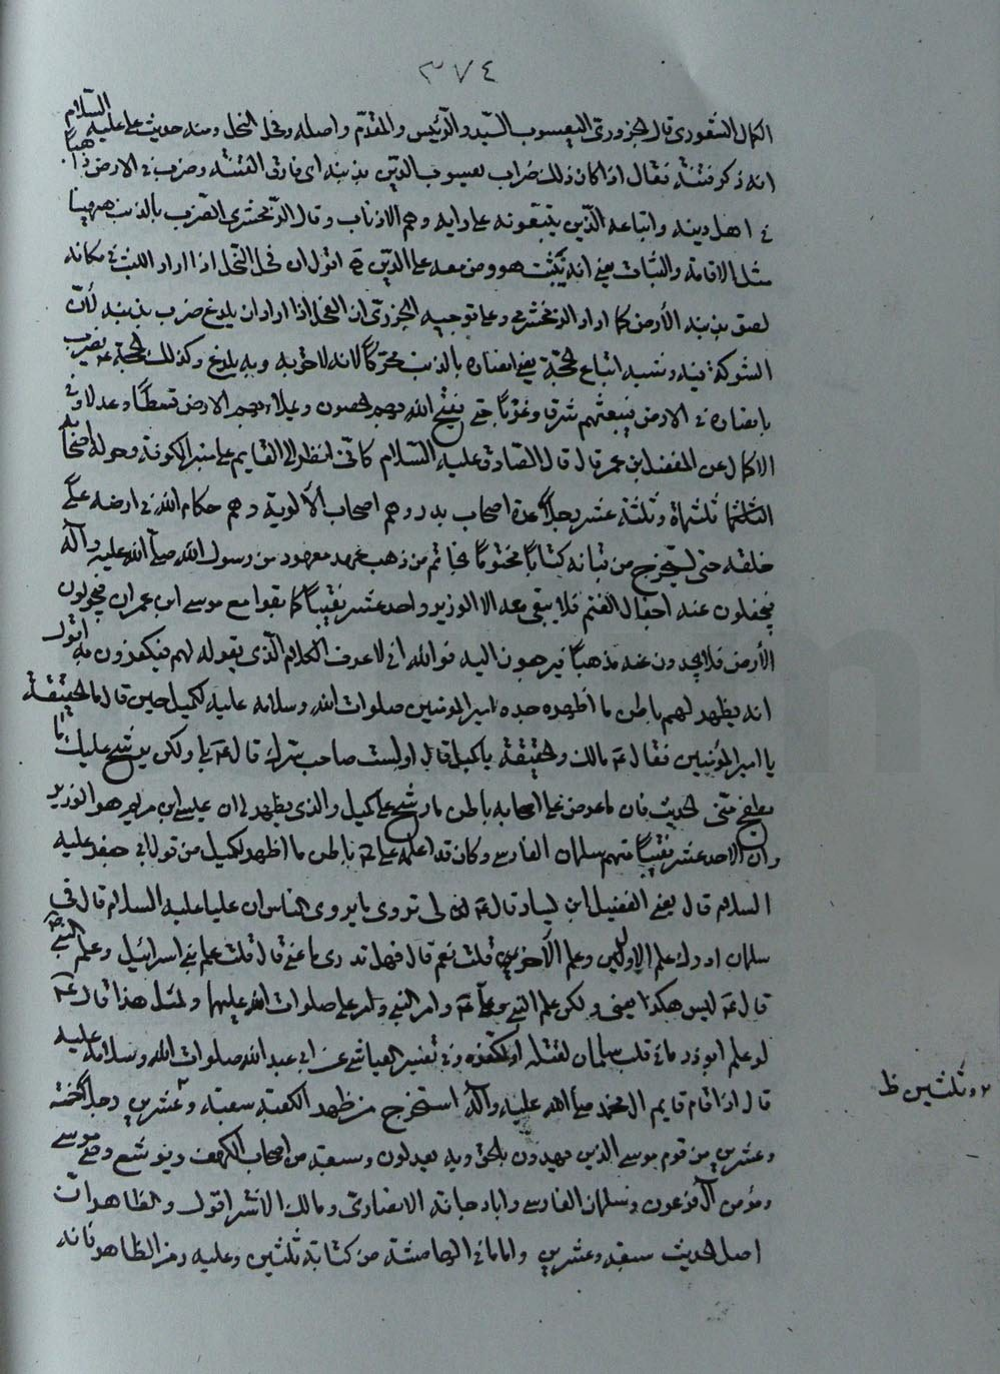 ٣٧٤
قال الجزورى اليعسوب السيد والرئيس والمقدم واصله وفحل النحل ومنه حديث على عليه السلام
انه ذكر فتنة فقال اذا كان ذلك ضرب يعسوب الدين بذنبه اى فارق الفتنة وضرب فى الارض ذاهبا
فى اهل دينه واتباعه الذين يتبعونه على رايه وهم الاذناب وقال الزمخشرى الضرب بالذنب ههنا
مثل الاقامة والثبات يعنى انه يثبت هو ومن معه على الدين اقول ان فحل النحل اذا اراد اللبث فى مكانه
لصق بذنبه الأرض كما اراد الزمخشرى وعلى توجيه الجزورى ان النحل اذا اراد ان يلدغ ضرب بذنبه لأن
الشوكة فيه وشبه اتباع الحجة يعنى انصاره بالذنب محركا لانه لاحق به وبه يلدغ وكذلك الحجة يضرب
بانصاره فى الارض يبعثهم شرقا وغربا حتى يفتح الله بهم الحصون ويملاء بهم الارض قسطا وعدلا وفى
الاكمال عن المفضل ابن عمر قال قال الصادق عليه السلام كانى انظر الى القايم على منبر الكوفة وحوله اصحابه
ثلثماة وثلثة عشر رجلا عدة اصحاب بدر وهم اصحاب الألوية وهم حكام الله فى ارضه على
خلقه حتى يستخرج من قبائه كتابا مختوما بخاتم من ذهب عهد معهود من رسول الله صلى الله عليه وآله
فيجفلون عنه اجفال الغنم فلا يبقى معه الا الوزير واحد عشر نقيبا كما بقوا مع موسى ابن عمران فيجولون
الأرض فلا يجدون عنه مذهبا فيرجعون اليه فوالله انى لاعرف الكلام الذى يقوله لهم فيكفرون به اقول
انه يظهر لهم باطن ما أظهره جده امير المؤمنين صلوات الله وسلامه عليه لكميل حين قال ما الحقيقة
يا امير المؤمنين فقال مالك والحقيقة يا كميل قال اولست صاحب سرك قال بلى ولكن يرشح عليك ما
يطفح منى الحديث فان ما عرض على اصحابه باطن ما رشح على كميل والذى يظهر لى ان عيسى ابن مريم هو الوزير
وان الاحد عشر نقيبا منهم سلمان الفارسى وكان قد اعلمه على باطن ما اظهر لكميل من قول ابى جعفر عليه
السلام قال يعنى الفضيل ابن يسار قال لى تروى ما يروى الناس ان عليا عليه السلام قال فى
سلمان ادرك علم الاولين وعلم الآخرين قلت نعم قال فهل تدرى ما عنى قال قلت علم بنى اسرائيل وعلم النبى
قال ليس هكذا يعنى ولكن علم النبى وعلم على وامر النبى وامر على صلوات الله عليهما ولمثل هذا قال
لو علم ابو ذر ما فى قلب سلمان لقتله او لكفره وفى تفسير العياشى عن ابى عبد الله صلوات الله وسلامه عليه
قال اذا قام قايم ال محمد صلى الله عليه وآله استخرج من ظهر الكعبة سبعة وعشرين رجلا خمسة
وعشرين من قوم موسى الذين يهدون بالحق وبه يعدلون وسبعة من اصحاب الكهف ويوشع وصى موسى
ومؤمن آل فرعون وسلمان الفارسى وابا دجانة الانصارى ومالك الاشتر اقول والظاهر ان
اصل الحديث سبعة وعشرين واما ما فى الهامشة من كتابة ثلثين وعليه رمز الظاهر فانه
وثلثين ظ